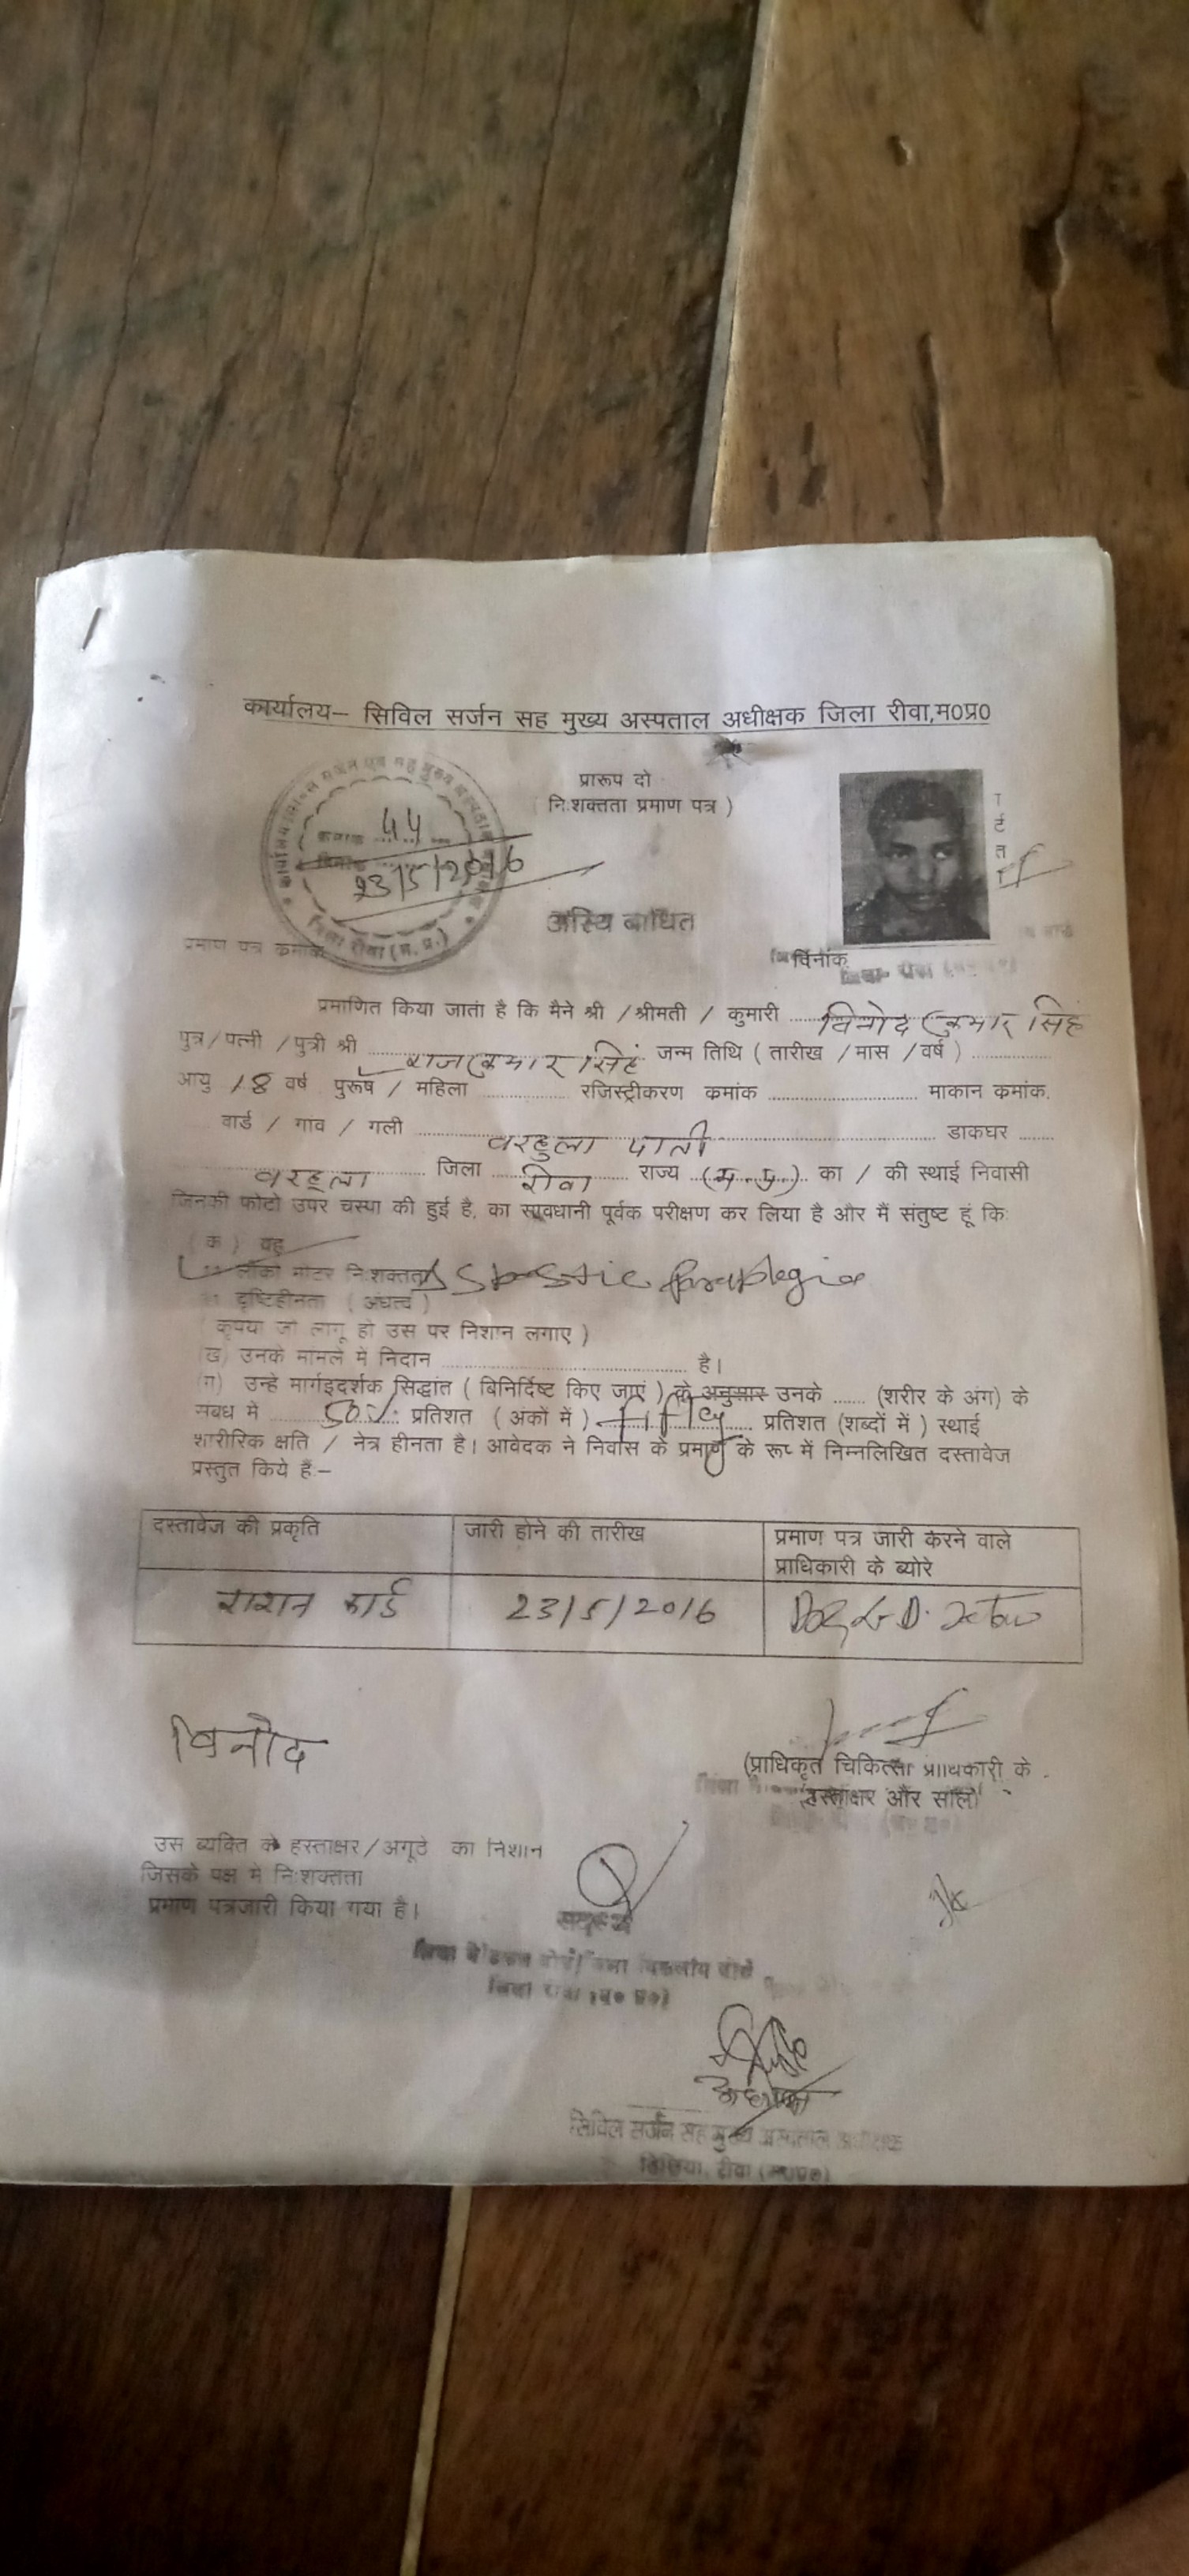 कार्यालय– सिविल सर्जन सह मुख्य अस्पताल अधीक्षक जिला रीवा,म0प्र0
प्रारूप दो
निःशक्तता प्रमाण पत्र )
क्रमांक 44
23/5/2016
जिला रीवा (म. प्र.)
अस्थि बाधित
प्रमाण पत्र कमांक
दिनांक
प्रमाणित किया जाता है कि मैने श्री / श्रीमती / कुमारी विनोद कुमार सिंह
पुत्र / पत्नी / पुत्री श्री राजकुमार सिंह जन्म तिथि ( तारीख / मास / वर्ष )
आयु 18 वर्ष पुरूष / महिला रजिस्ट्रीकरण कमांक माकान कमांक.
वार्ड / गांव / गली वरहुला पाती डाकघर
वरहुला जिला रीवा राज्य (म.प्र.) का / की स्थाई निवासी
जिनकी फोटो उपर चस्पा की हुई है, का सावधानी पूर्वक परीक्षण कर लिया है और मैं संतुष्ट हूं कि:
( क ) वह
लोको मोटर निःशक्तता Spastic Paraplegia
दृष्टिहीनता ( अंधत्व )
( कृपया जो लागू हो उस पर निशान लगाए )
(ख) उनके मामले मे निदान है।
(ग) उन्हे मार्गइदर्शक सिद्धांत ( बिनिर्दिष्ट किए जाएं ) के अनुसार उनके ...... (शरीर के अंग) के
संबध में 50% प्रतिशत ( अंकों में ) fifty प्रतिशत (शब्दों में ) स्थाई
शारीरिक क्षति / नेत्र हीनता है। आवेदक ने निवास के प्रमाण के रूप में निम्नलिखित दस्तावेज
प्रस्तुत किये हैं:–
दस्तावेज की प्रकृति जारी होने की तारीख प्रमाण पत्र जारी करने वाले
प्राधिकारी के ब्योरे
राशन कार्ड 23/5/2016
विनोद
(प्राधिकृत चिकित्सा प्राधिकारी के
हस्ताक्षर और सील)
उस व्यक्ति के हस्ताक्षर / अगूठे का निशान
जिसके पक्ष मे निःशक्तता
प्रमाण पत्रजारी किया गया है।
सदस्य
सिविल सर्जन सह मुख्य अस्पताल अधीक्षक